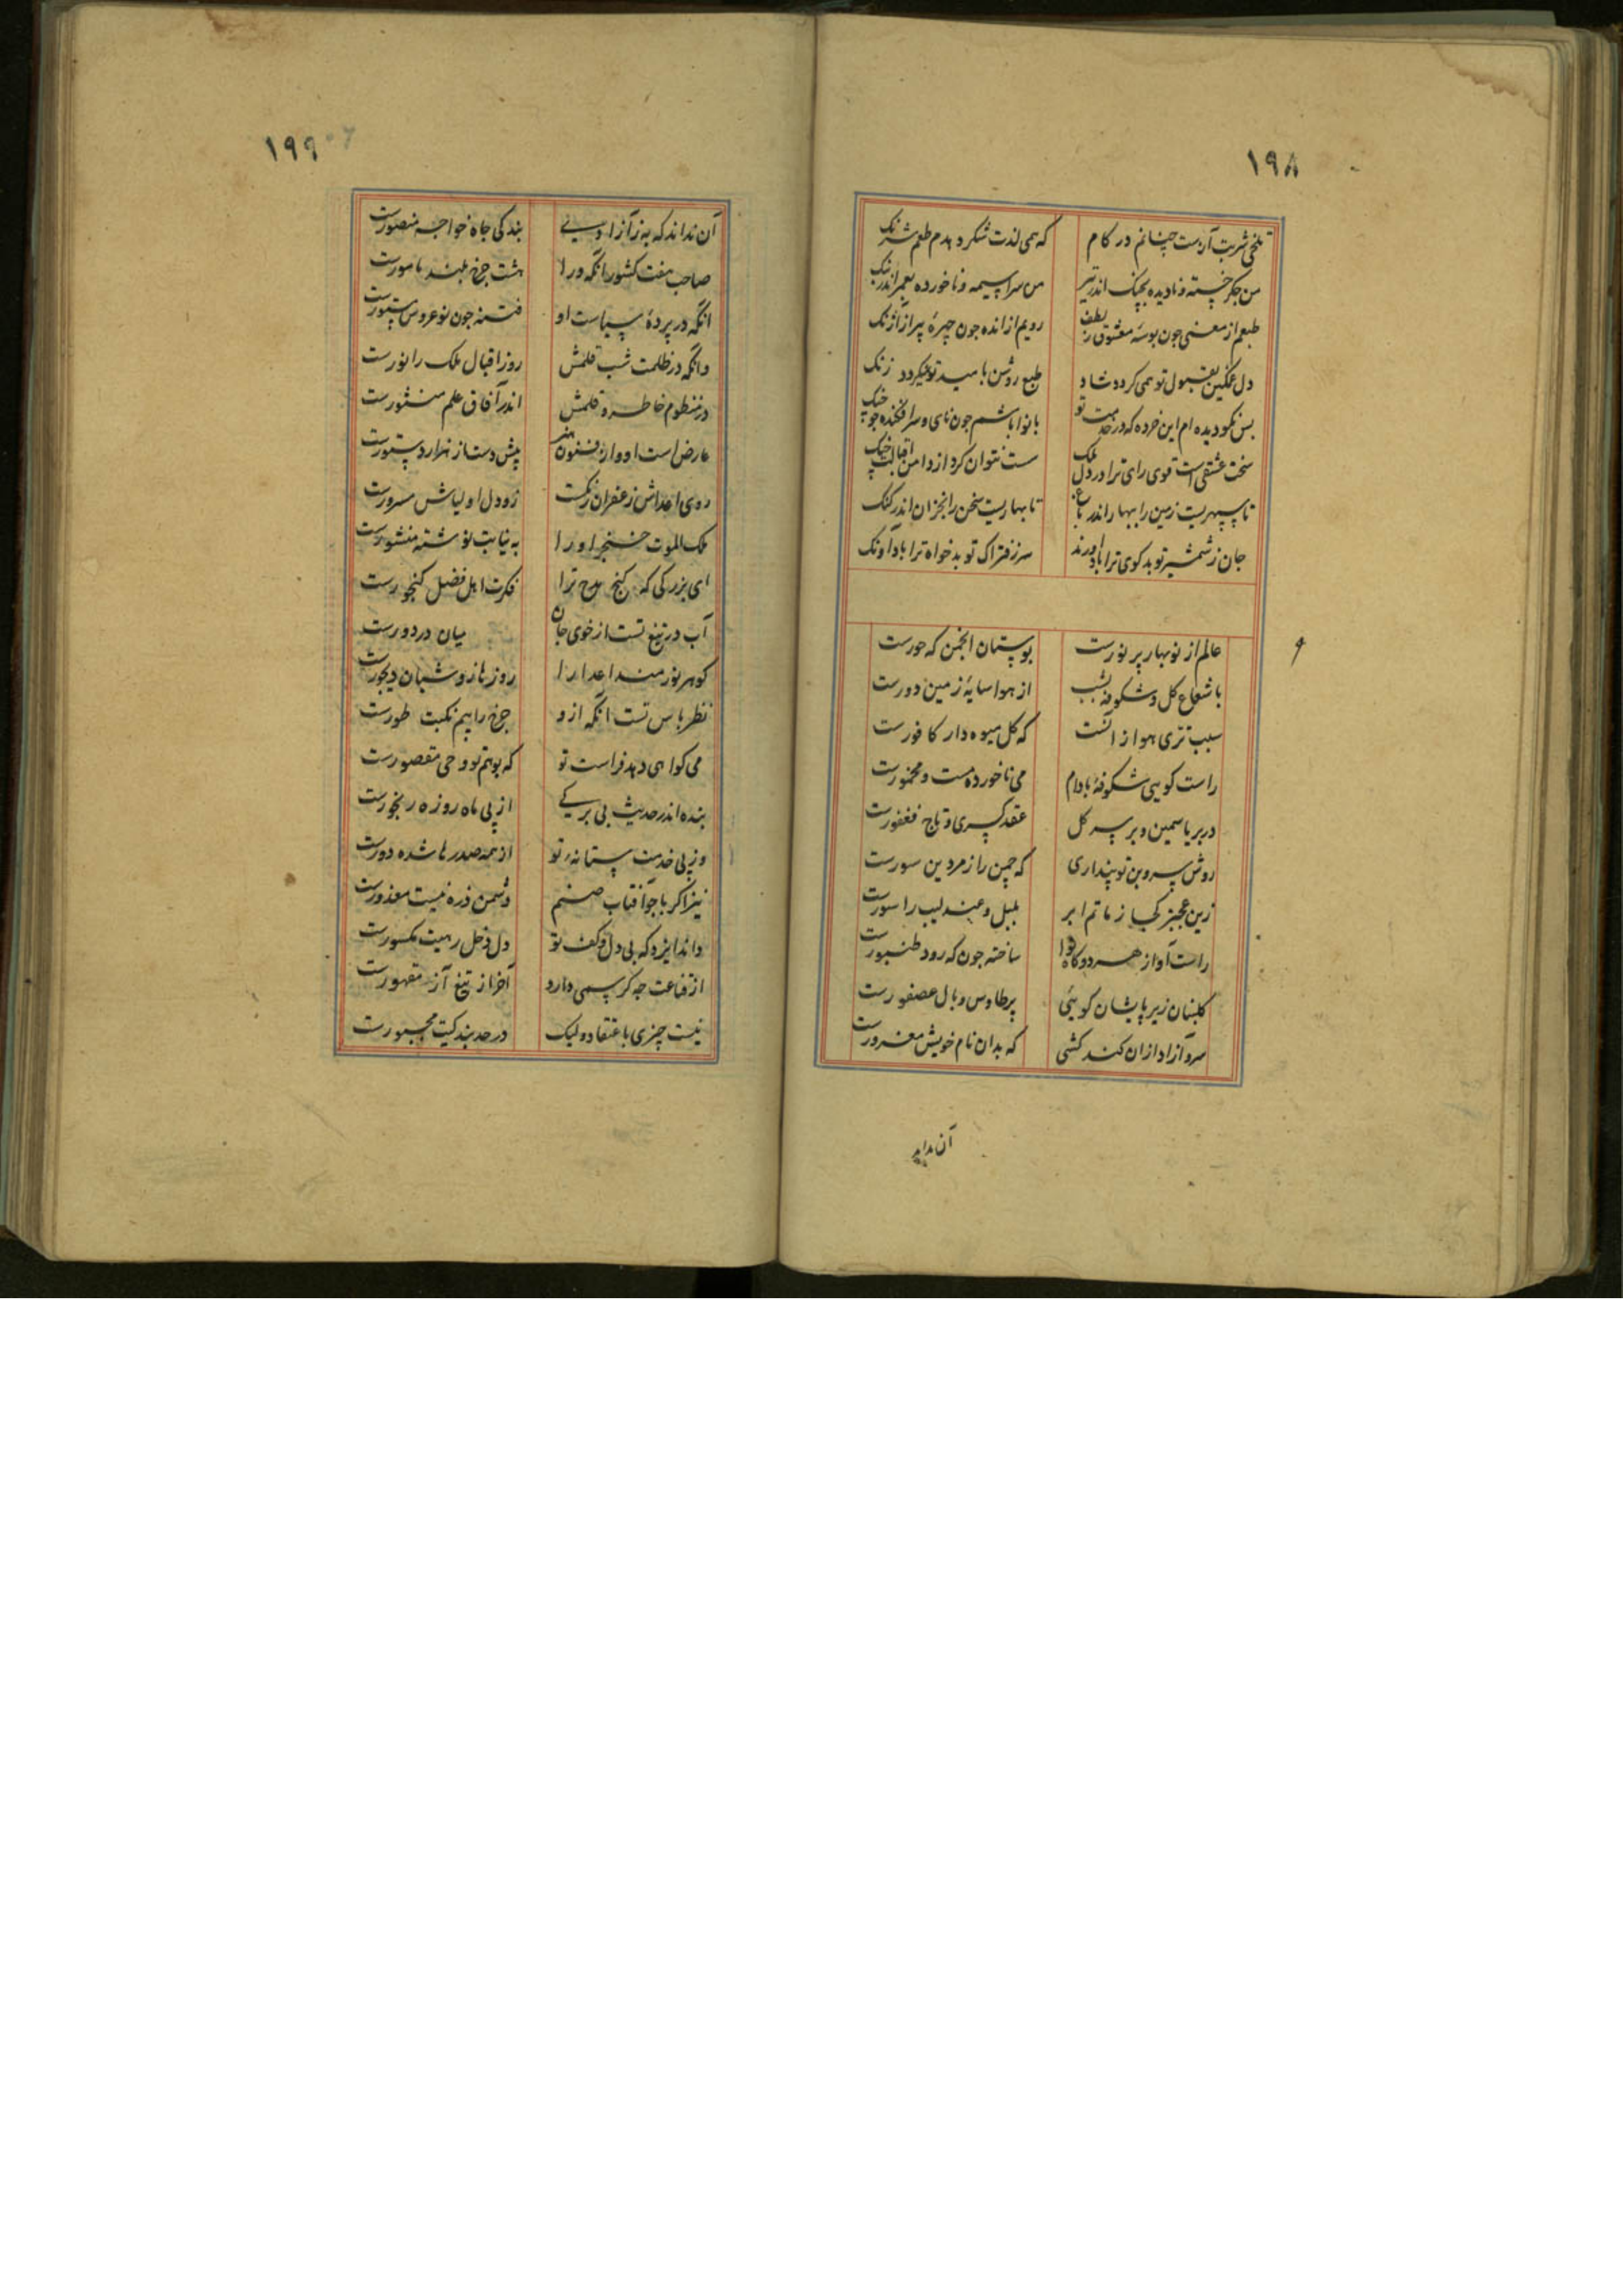 ١٩٨
تلخی شربت آن هست چنانم در کام که همی لذت شکر دهدم طعم شرنک
من جکر خسته و نادیده بجنک اندر تیر من سراسیمه و ناخورده بعمر اندر بنک
طبعم از معنی جون بوسه معشوق لطف رویم از انده جون چهره پیر از آژنک
دل غمکین بقبول تو همی کردد شاد طبع روشن بامید تو نمیکردد زنک
بس نکو دیده ام این خرده که در خدمت تو بانوا باشم جون نای و سرافکنده جو چنک
سخت عشقی است قوی رای ترا در دل ملک ست نتوان کرد از دامن اقبالت چنک
تا سپهریست زمین را ببهار اندر باغ تا بهاریست سخن را بخزان اندر کنک
جان ز شمشیر تو بدکوی ترا باد آورند سر ز فتراک تو بدخواه ترا باد آونک
عالم از نوبهار پر نورست بوستان انجمن که حورست
با شعاع کل و شکوفه بشب از هوا سایه زمین دورست
سبب تری هوا ز انست که کل میوه دار کافورست
راست کویی شکوفه بادام می ناخورده مست و مخمورست
در بر یاسمین و بر سر کل عقد کسری و تاج فغفورست
روش سروبن تو پنداری که چمن را زمردین سورست
زین عجبتر کجا ز ماتم ابر بلبل و عندلیب را سورست
راست آواز هر دو کاه نوا ساخته جون که رود طنبورست
کلبنان زیر پایشان کویئی پر طاوس و بال عصفورست
سرو آزاد ازان کند کشی که بدان نام خویش مغرورست
آن نداند
١٩٩
آن نداند که به ز آزادیی بندکی جاه خواجه منصورست
صاحب هفت کشور انکه ورا هشت جرخ بلند مامورست
انکه در پردهٔ سیاست او فتنه جون نوعروس مستورست
وانکه در ظلمت شب قلمش روز اقبال ملک را نورست
در منظوم خاطر و قلمش اندر آفاق علم منثورست
عارض است او واز فنون هنر پیش دست از هزار دستورست
روی اعداش زعفران رنکست زو دل اولیاش مسرورست
ملک الموت خنجر او را به نیابت نوشته منشورست
ای بزرکی که کنج مدح ترا فکرت اهل فضل کنجورست
آب در تیغ تست از خوی جان میان در دورست
کوهر نورمند اعدا را روز ناز و شبان دیجورست
نظر باس تست انکه ازو جرخ را بیم نکبت طورست
می کواهی دهد فراست تو که بوهم تو وحی مقصورست
بنده اندر حدیث بی برکی از پی ماه روزه رنجورست
وز پی خدمت ستانه تو از همه صدرها شده دورست
نیز اکر با جو آفتاب صنم دشمن ذره نیست معذورست
داند ایزد که بی دل و کف تو دل دخل رهیت مکسورست
از قناعت جه کر سمی دارد آخر از تیغ آز مقهورست
نیست چیزی باعتقاد ولیک در حد بندکیت مجبورست